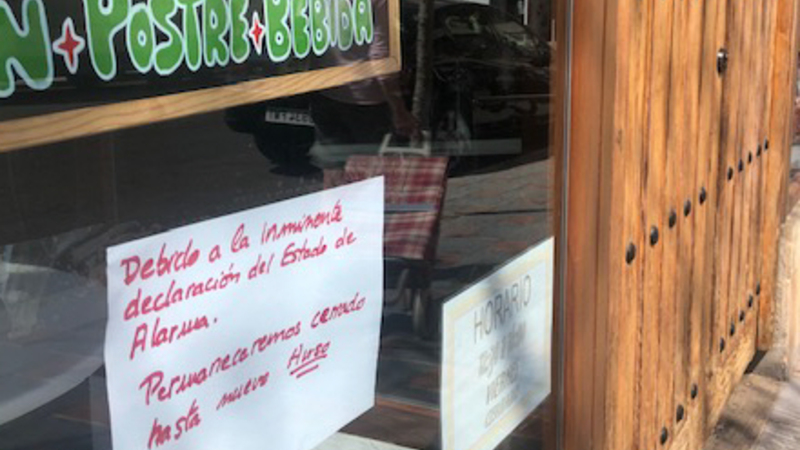 N + POSTRE + BEBIDA
Debido a la inminente
declaración del Estado de
Alarma.
Permaneceremos cerrado
hasta nuevo
HORARIO